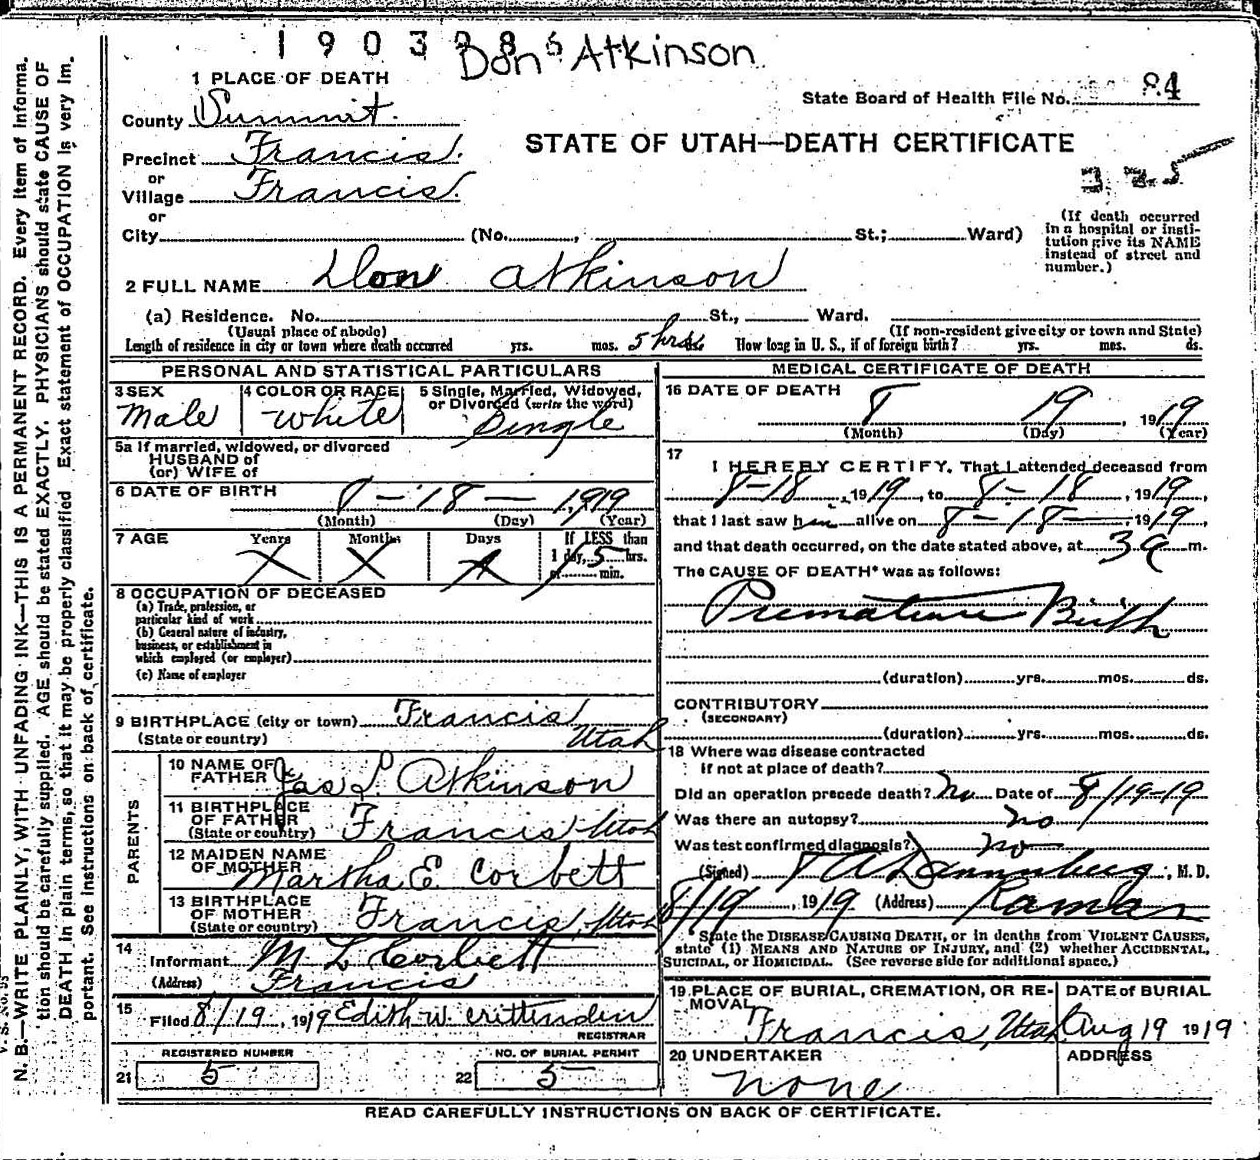 Don Atkinson
1 PLACE OF DEATH
State Board of Health File No. 84
County Summit.
STATE OF UTAH—DEATH CERTIFICATE
Precinct Francis.
or
Village Francis.
325
or
City (No. , St.; Ward)
(If death occurred
in a hospital or insti-
tution give its NAME
instead of street and
number.)
2 FULL NAME Don Atkinson
(a) Residence. No. St., Ward.
(Usual place of abode) (If non-resident give city or town and State)
Length of residence in city or town where death occurred yrs. mos. 5 hrs ds. How long in U. S., if of foreign birth? yrs. mos. ds.
PERSONAL AND STATISTICAL PARTICULARS
3 SEX 4 COLOR OR RACE 5 Single, Married, Widowed,
or Divorced (write the word)
Male White Single
5a If married, widowed, or divorced
HUSBAND of
(or) WIFE of
6 DATE OF BIRTH 8-18- 1919
(Month) (Day) (Year)
7 AGE Years Months Days If LESS than
1 day, 5 hrs.
or min.
8 OCCUPATION OF DECEASED
(a) Trade, profession, or
particular kind of work
(b) General nature of industry,
business, or establishment in
which employed (or employer)
(c) Name of employer
9 BIRTHPLACE (city or town) Francis
(State or country) Utah
PARENTS
10 NAME OF
FATHER Jas L Atkinson
11 BIRTHPLACE
OF FATHER
(State or country) Francis Utah
12 MAIDEN NAME
OF MOTHER Martha E Corbett
13 BIRTHPLACE
OF MOTHER
(State or country) Francis Utah
14
Informant M L Corbett
(Address) Francis
15
Filed 8/19, 1919 Edith W. Crittenden
REGISTRAR
REGISTERED NUMBER NO. OF BURIAL PERMIT
21 5 22 5
MEDICAL CERTIFICATE OF DEATH
16 DATE OF DEATH
8 19, 1919
(Month) (Day) (Year)
17
I HEREBY CERTIFY, That I attended deceased from
8-18, 1919, to 8-18, 1919,
that I last saw him alive on 8-18-, 1919,
and that death occurred, on the date stated above, at 3 a m.
The CAUSE OF DEATH* was as follows:
Premature Birth
(duration) yrs. mos. ds.
CONTRIBUTORY
(SECONDARY)
(duration) yrs. mos. ds.
18 Where was disease contracted
if not at place of death?
Did an operation precede death? No Date of 8/19-19
Was there an autopsy? no
Was test confirmed diagnosis? no
(Signed) , M. D.
8/19, 1919 (Address) Kamas
State the DISEASE CAUSING DEATH, or in deaths from VIOLENT CAUSES,
state (1) MEANS AND NATURE OF INJURY, and (2) whether ACCIDENTAL,
SUICIDAL, or HOMICIDAL. (See reverse side for additional space.)
19 PLACE OF BURIAL, CREMATION, OR RE-
MOVAL DATE of BURIAL
Francis, Utah Aug 19 1919
20 UNDERTAKER ADDRESS
none
READ CAREFULLY INSTRUCTIONS ON BACK OF CERTIFICATE.
N. B.—WRITE PLAINLY, WITH UNFADING INK—THIS IS A PERMANENT RECORD. Every item of informa-
tion should be carefully supplied. AGE should be stated EXACTLY. PHYSICIANS should state CAUSE OF
DEATH in plain terms, so that it may be properly classified. Exact statement of OCCUPATION is very im-
portant. See instructions on back of certificate.